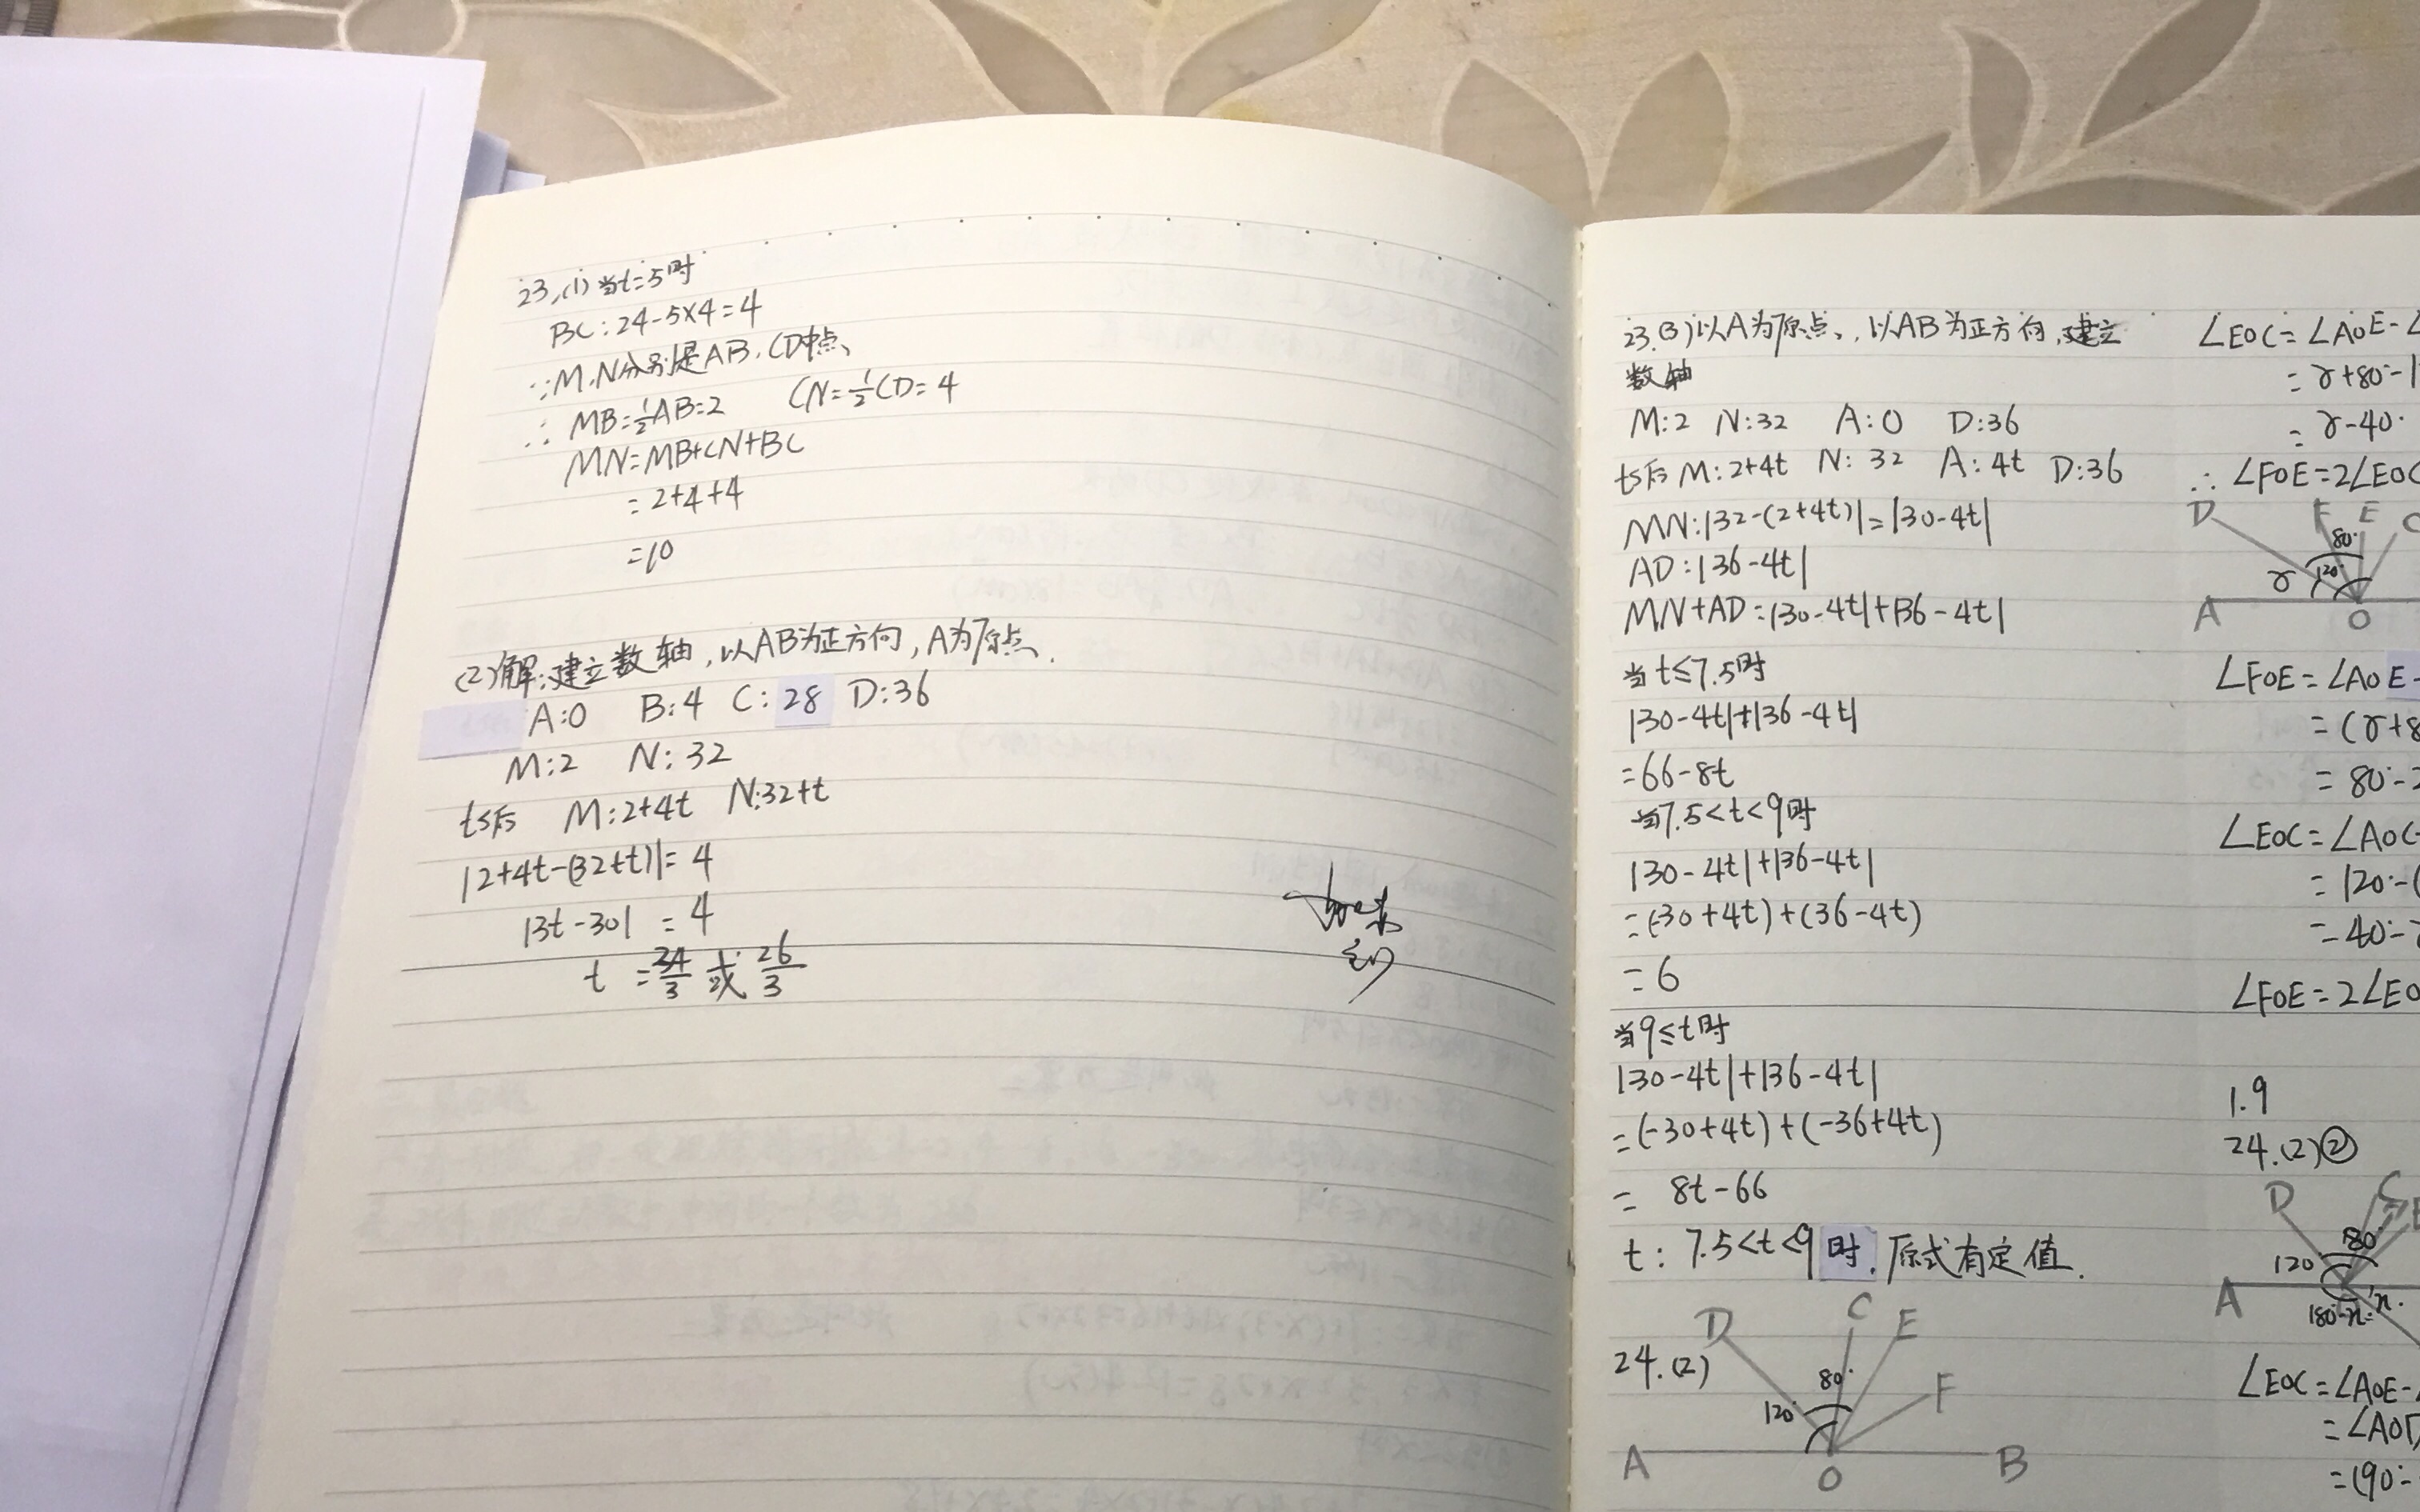 23.(1)当t=5时
BC:24-5×4=4
∵M.N分别是AB.CD中点、
∴ MB=½AB=2 CN=½CD=4
MN=MB+CN+BC
=2+4+4
=10
(2)解:建立数轴,以AB为正方向,A为原点.
A:0 B:4 C:28 D:36
M:2 N:32
ts后 M:2+4t N:32+t
|2+4t-(32+t)|=4
|3t-30|=4
t=34/3 或 26/3
23.(3)以A为原点、,以AB为正方向,建立
数轴
M:2 N:32 A:0 D:36
ts后 M:2+4t N:32 A:4t D:36
MN:|32-(2+4t)|=|30-4t|
AD:|36-4t|
MN+AD:|30-4t|+|36-4t|
当t≤7.5时
|30-4t|+|36-4t|
=66-8t
当7.5<t<9时
|30-4t|+|36-4t|
=(-30+4t)+(36-4t)
=6
当9≤t时
|30-4t|+|36-4t|
=(-30+4t)+(-36+4t)
= 8t-66
t: 7.5<t<9时.原式有定值.
24.(2)
D C E
80°
F
120°
A O B
∠EOC=∠AOE-∠
=γ+80°-1
=γ-40°
∴∠FOE=2∠EOC
D F E C
80°
γ 120°
A O
∠FOE=∠AOE-
=(γ+8
=80°-2
∠EOC=∠AOC-
=120°-(
=40°-γ
∠FOE=2∠EO
1.9
24.(2)②
D C
E
80°
120
A
180°-n° n°
∠EOC=∠AOE-
=∠AOD
=(90°-